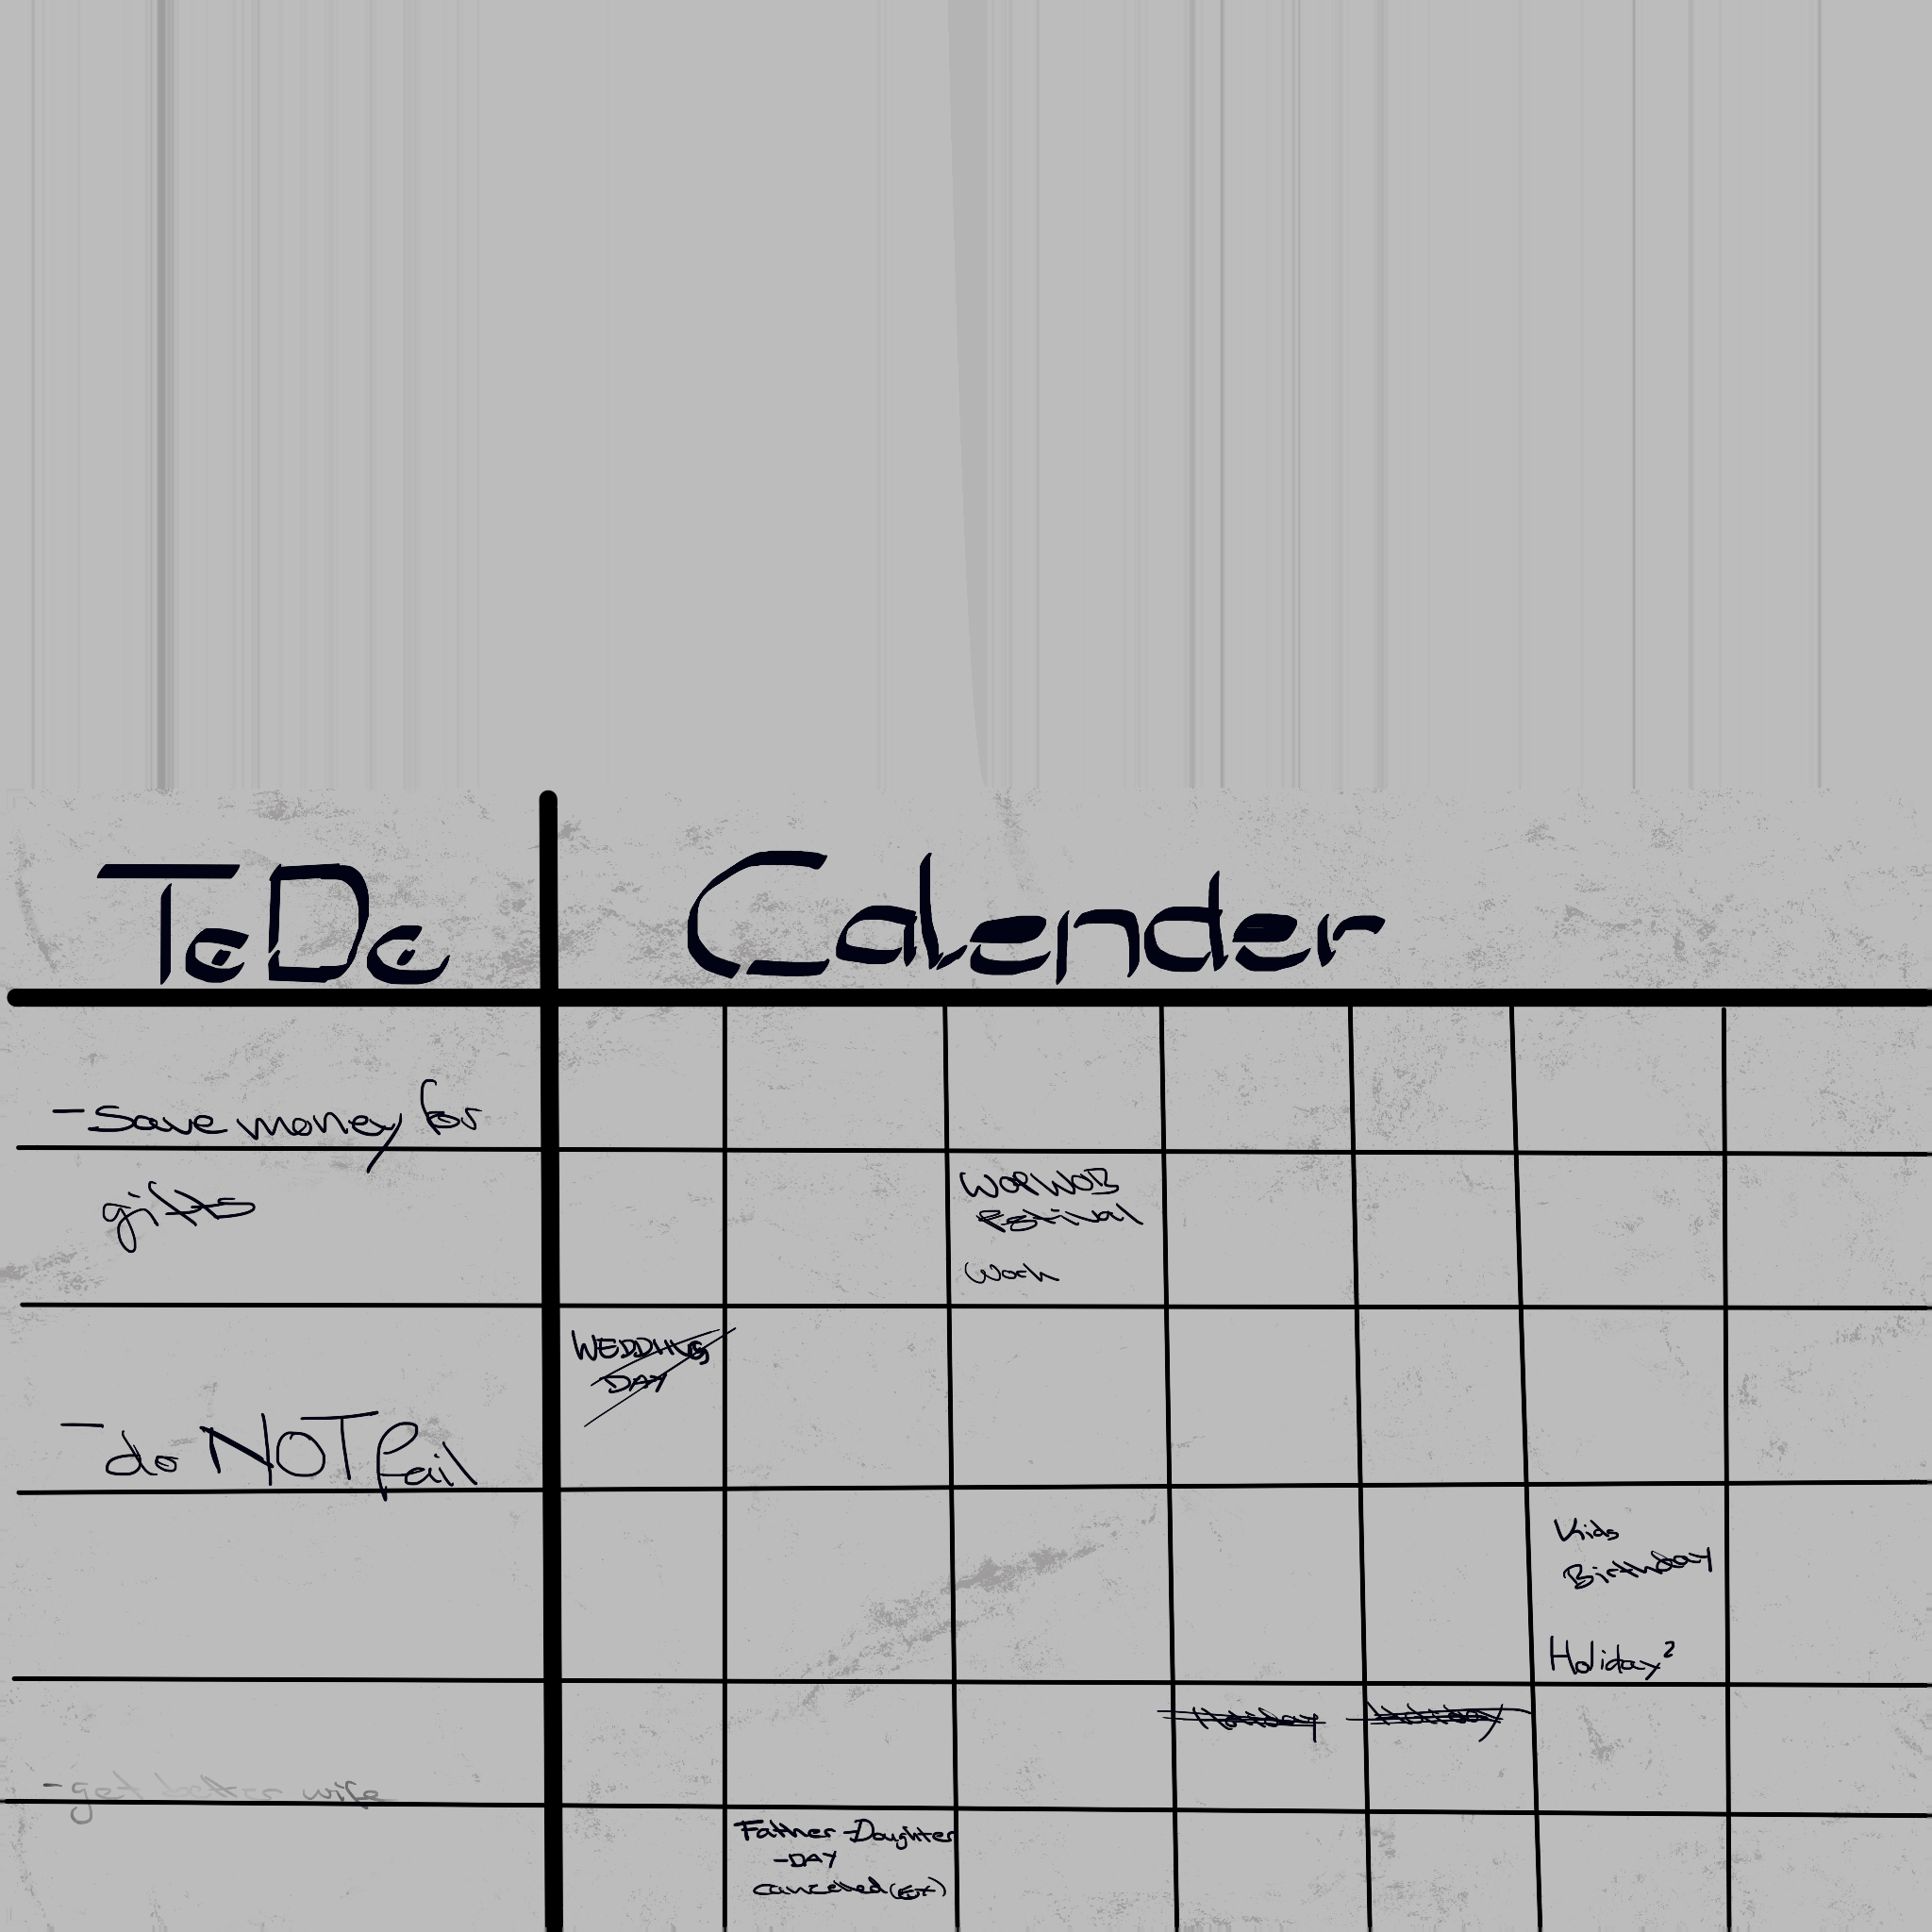 ToDo
Calender
-save money for
gifts
-do NOT fail
-get better wife
WOPWOB
festival
Work
WEDDING
DAY
Kids
Birthday
Holiday²
Holiday
Holiday
Father-Daughter
-DAY
canceled (Ex)